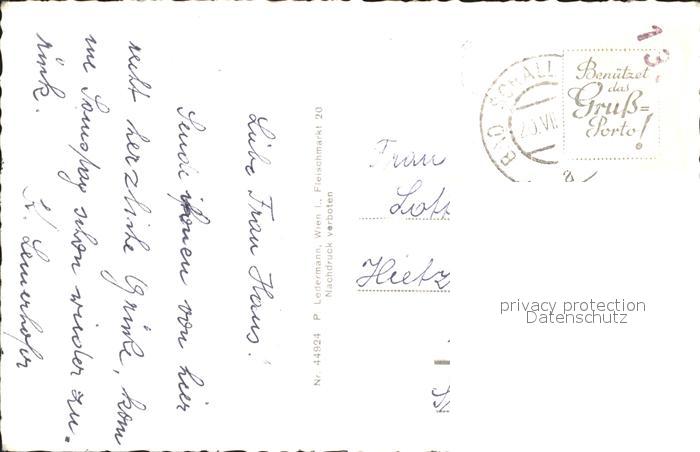 Liebe Frau Haus!
Sende Ihnen von hier
recht herzliche Grüße, kom
me Samstag schon wieder zu-
rück.
Nr. 44924 P. Ledermann, Wien I., Fleischmarkt 20
Nachdruck verboten
Frau
Lott
Hietz
13.
BAD SCHALL
20.VII.
8
Benützet
das
Gruß=
Porto!
privacy protection
Datenschutz